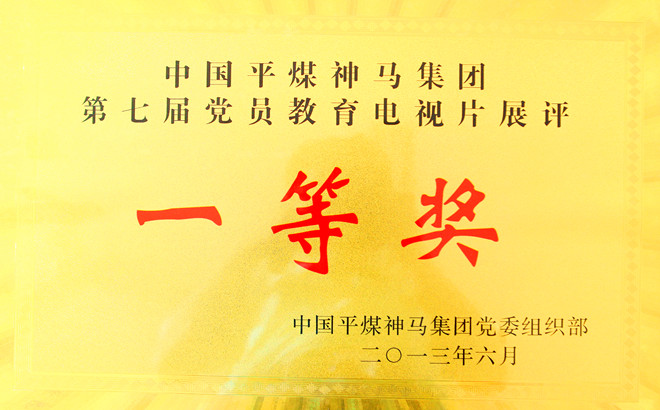 中国平煤神马集团
第七届党员教育电视片展评
一等奖
中国平煤神马集团党委组织部
二〇一三年六月